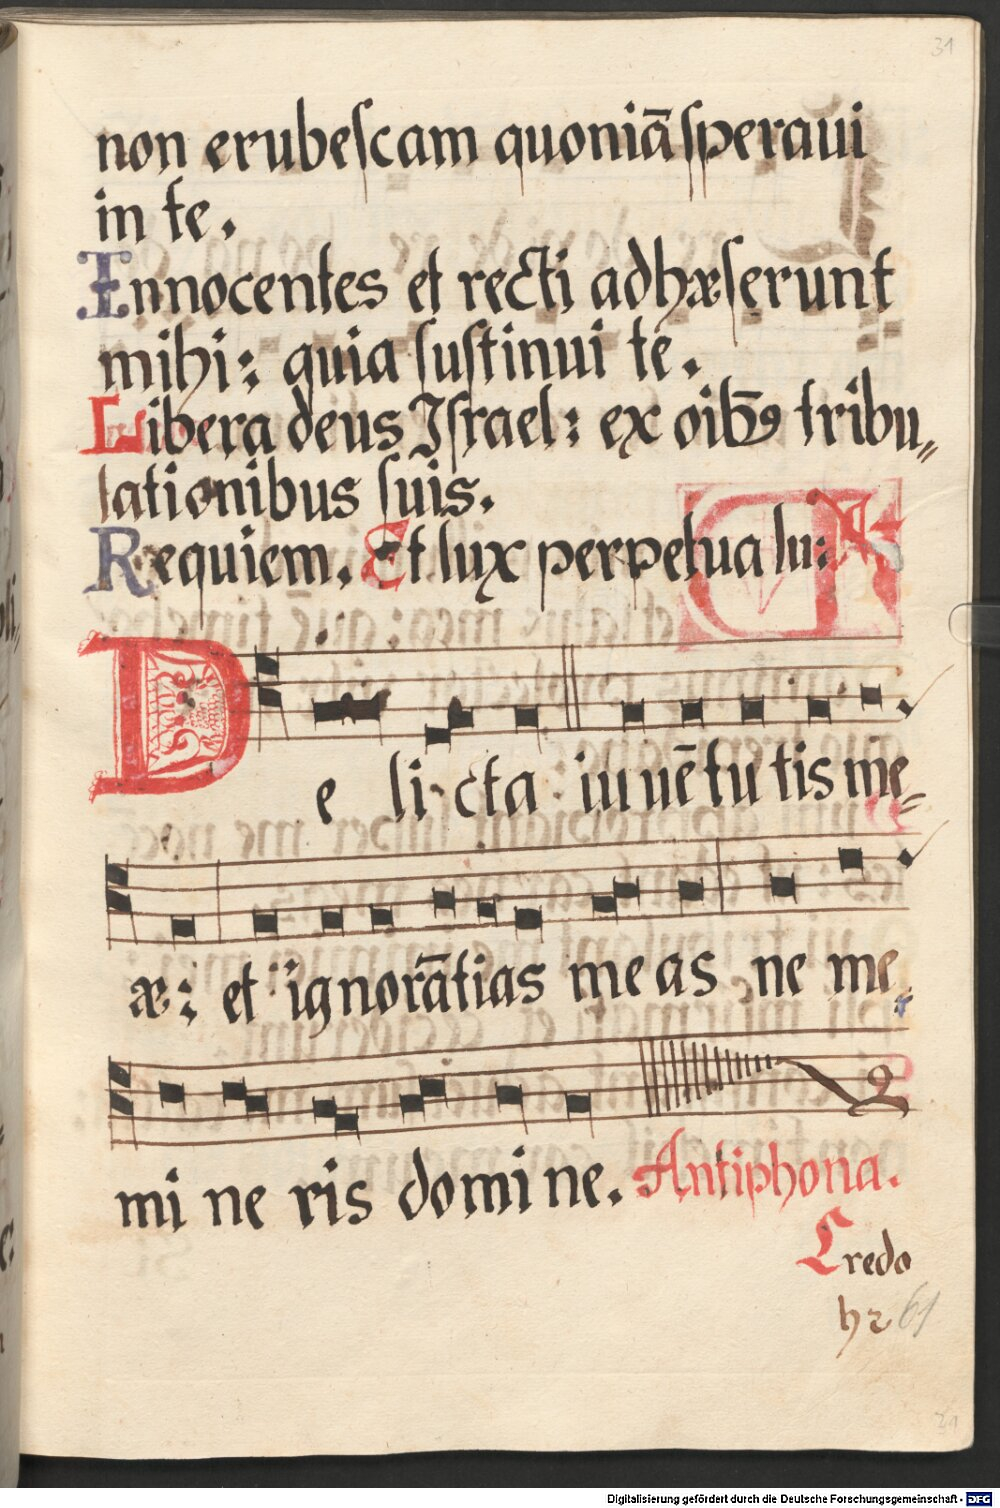 31
non erubescam quoniā speraui
in te.
Innocentes et recti adhæserunt
mihi: quia sustinui te.
Libera deus Israel: ex oib9 tribu„
lationibus suis.
Requiem. Et lux perpetua lu:
De licta iuuētutis me-
æ: et ignorātias meas ne me-
mineris domine. Antiphona.
Credo
61
31
Digitalisierung gefördert durch die Deutsche Forschungsgemeinschaft - DFG